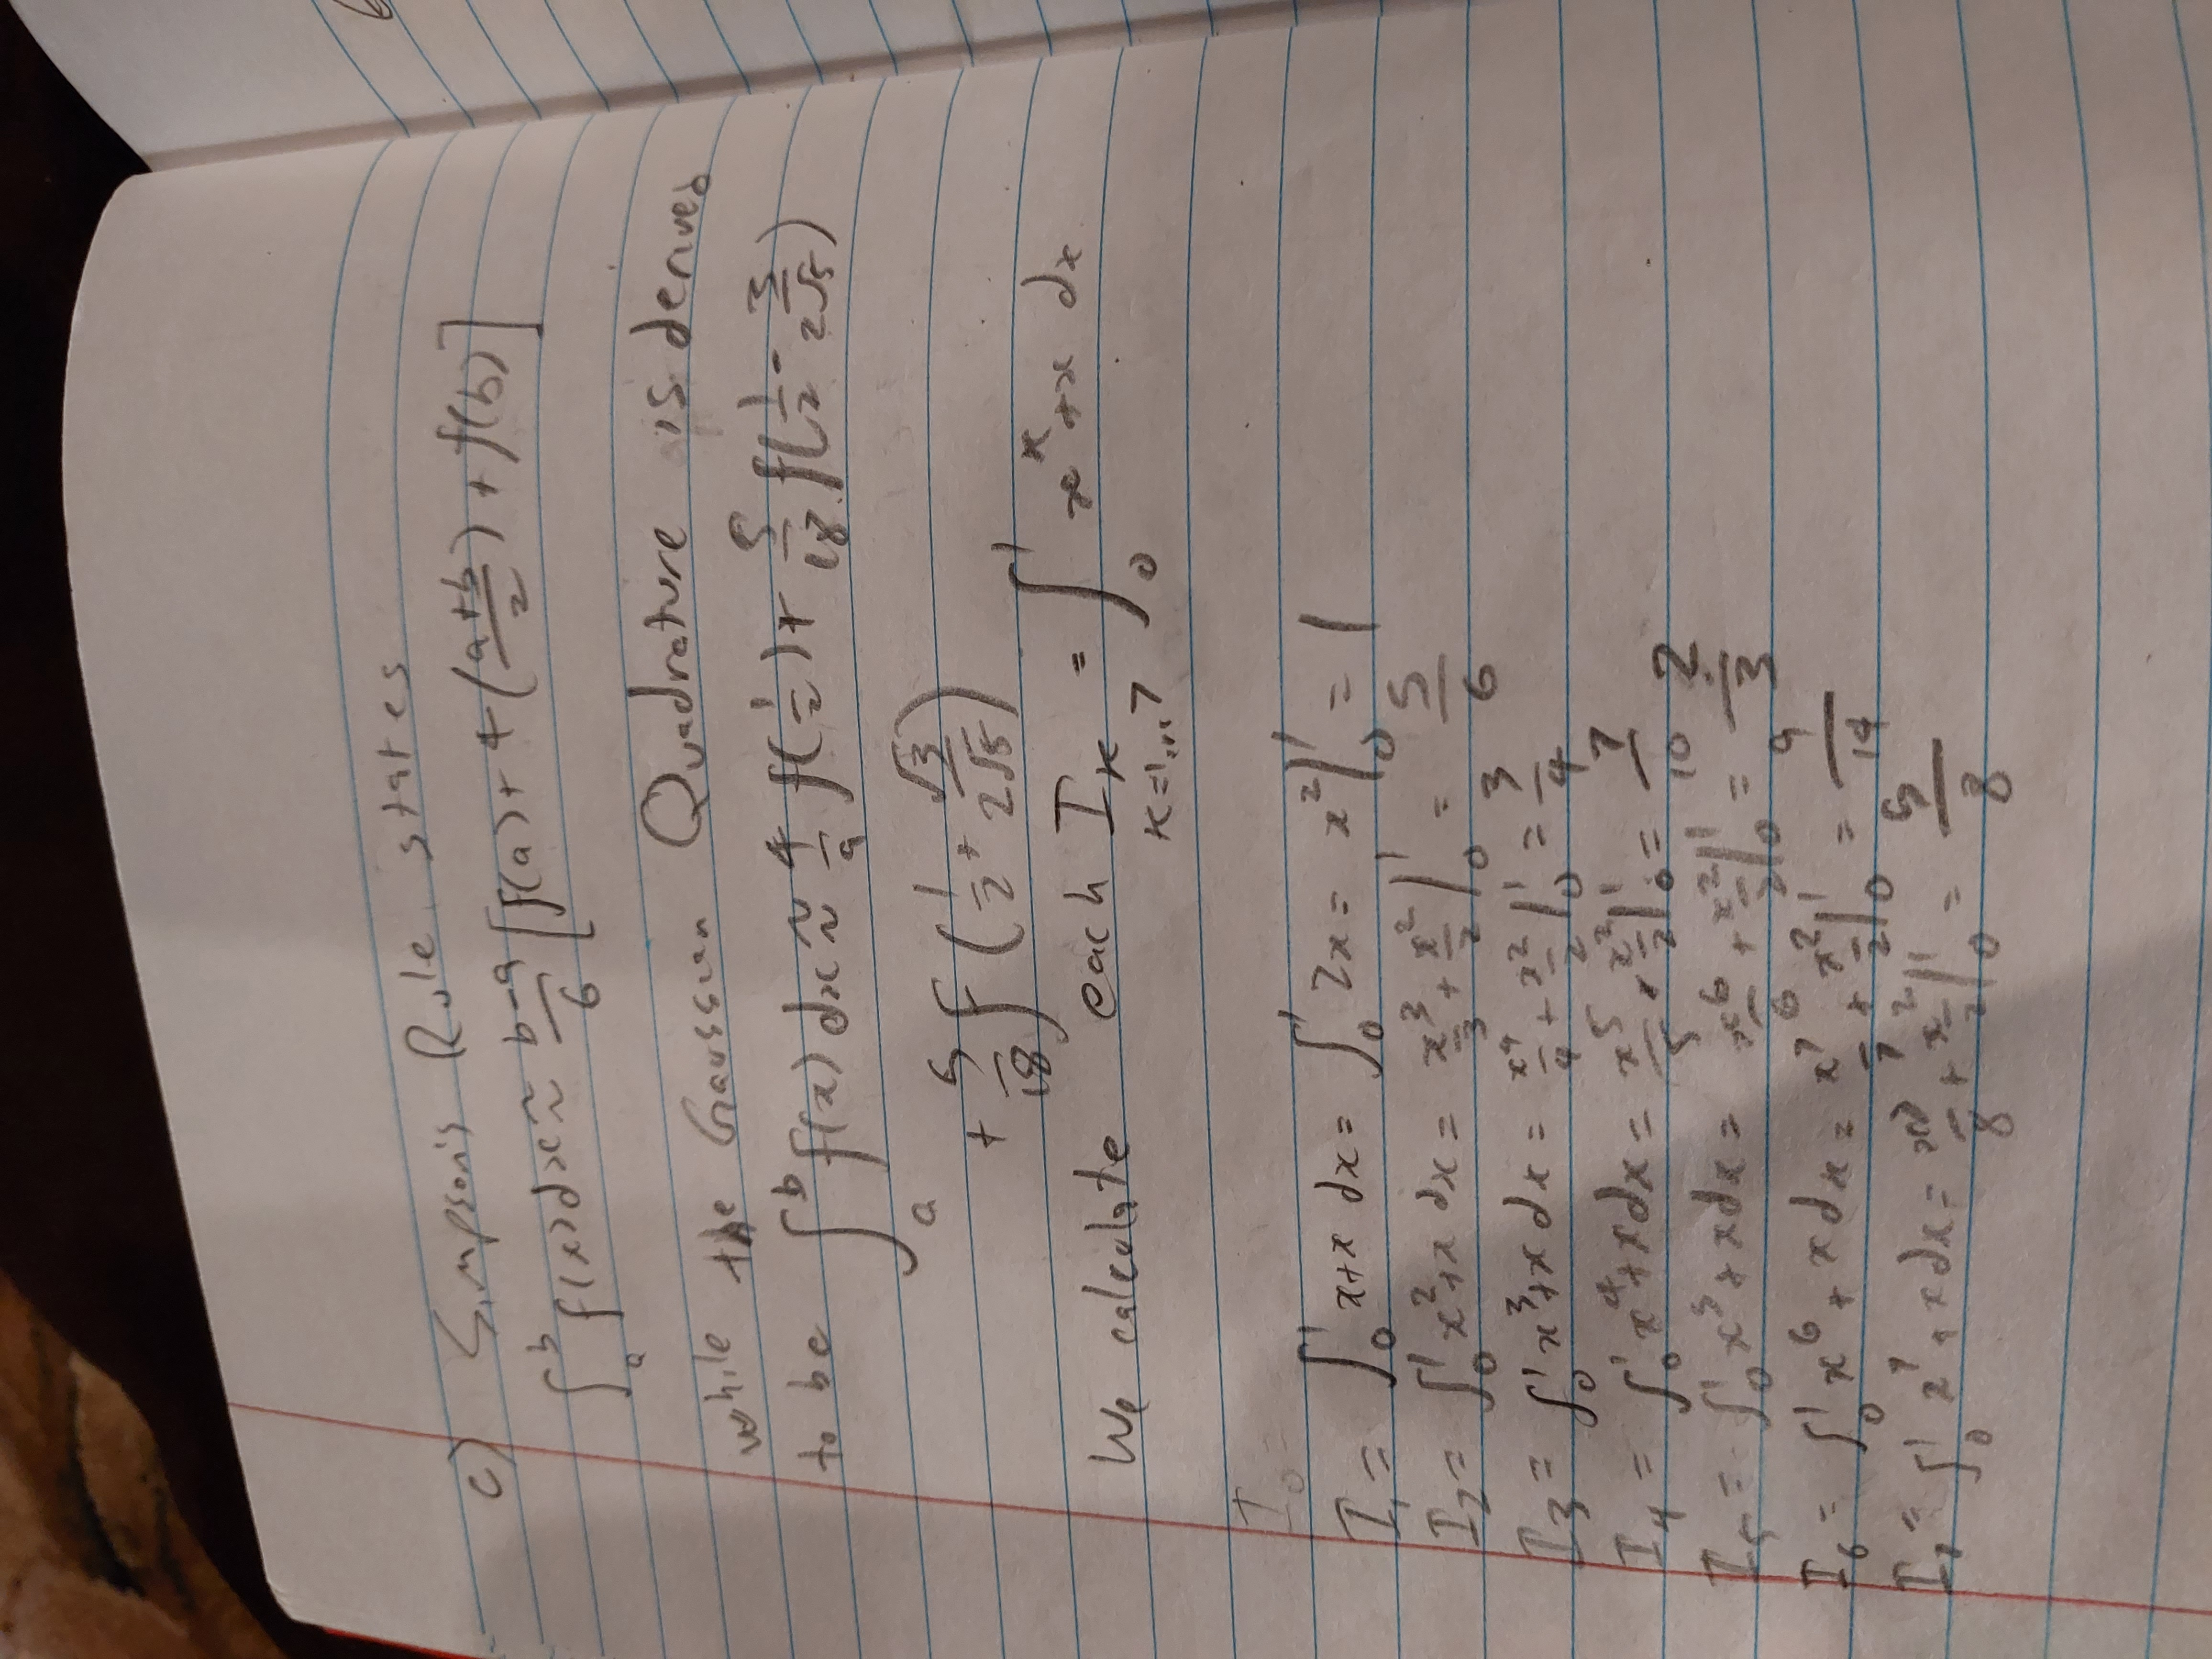 c) Simpson's Rule states
∫_a^b f(x)dx ≈ b-a/6 [f(a) + 4(a+b/2) + f(b)]
while the Gaussian Quadrature is derived
to be ∫_a^b f(x) dx ≈ 4/9 f(1/2) + 5/18 f(1/2 - 3/2√5)
+ 5/18 f(1/2 + √3/2√5)
We calculate each I_k = ∫_0^1 x^k + x dx
k=1,..,7
I_0 =
I_1 = ∫_0^1 x+x dx = ∫_0^1 2x = x^2|_0^1 = 1
I_2 = ∫_0^1 x^2+x dx = x^3/3 + x^2/2 |_0^1 = 5/6
I_3 = ∫_0^1 x^3+x dx = x^4/4 + x^2/2 |_0^1 = 3/4
I_4 = ∫_0^1 x^4+x dx = x^5/5 + x^2/2 |_0^1 = 7/10
I_5 = ∫_0^1 x^5+x dx = x^6/6 + x^2/2 |_0^1 = 2/3
I_6 = ∫_0^1 x^6+x dx = x^7/7 + x^2/2 |_0^1 = 9/14
I_7 = ∫_0^1 x^7+x dx = x^8/8 + x^2/2 |_0^1 = 5/8